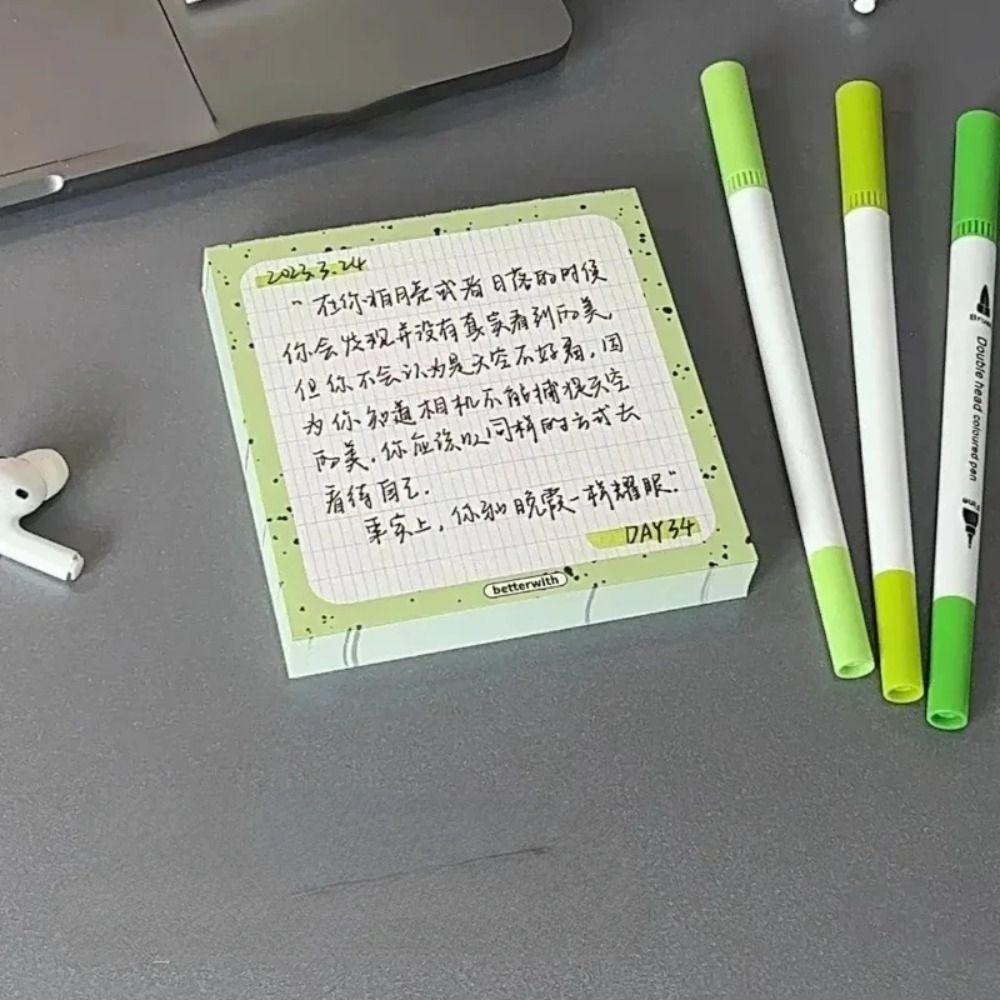 2023.3.24
“在你拍月亮或者日落的时候
你会发现并没有真实看到的美,
但你不会认为是天空不好看,因
为你知道相机不能捕捉天空
的美,你应该以同样的方式去
看待自己.
事实上,你和晚霞一样耀眼.”
DAY 34
betterwith
Brush
Double head coloured pen
Fine